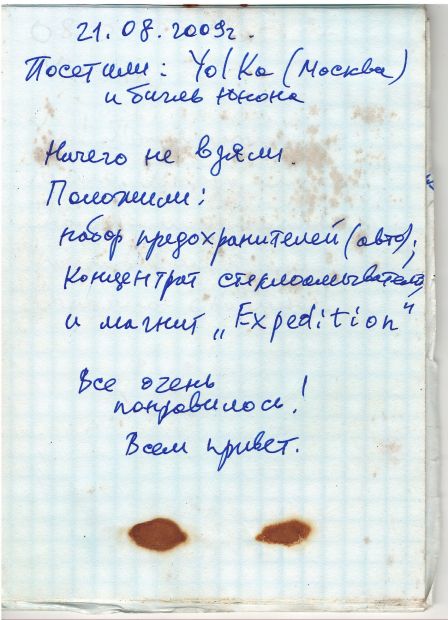 21.08.2009г.
Посетили: Yo!Ka (Москва)
и бигль Юнона
Ничего не взяли.
Положили:
набор предохранителей (авто);
концентрат стеклоомывателя,
и магнит „Expedition"
Все очень
понравилось!
Всем привет.